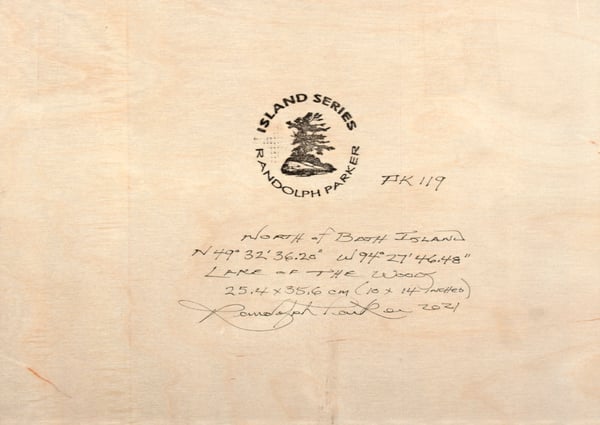 ISLAND SERIES
RANDOLPH PARKER
AK 119
NORTH of BATH ISLAND
N 49° 32' 36.20" W 94° 27' 46.48"
LAKE OF THE WOODS
25.4 x 35.6 cm (10 x 14 INCHES)
Randolph Parker 2021